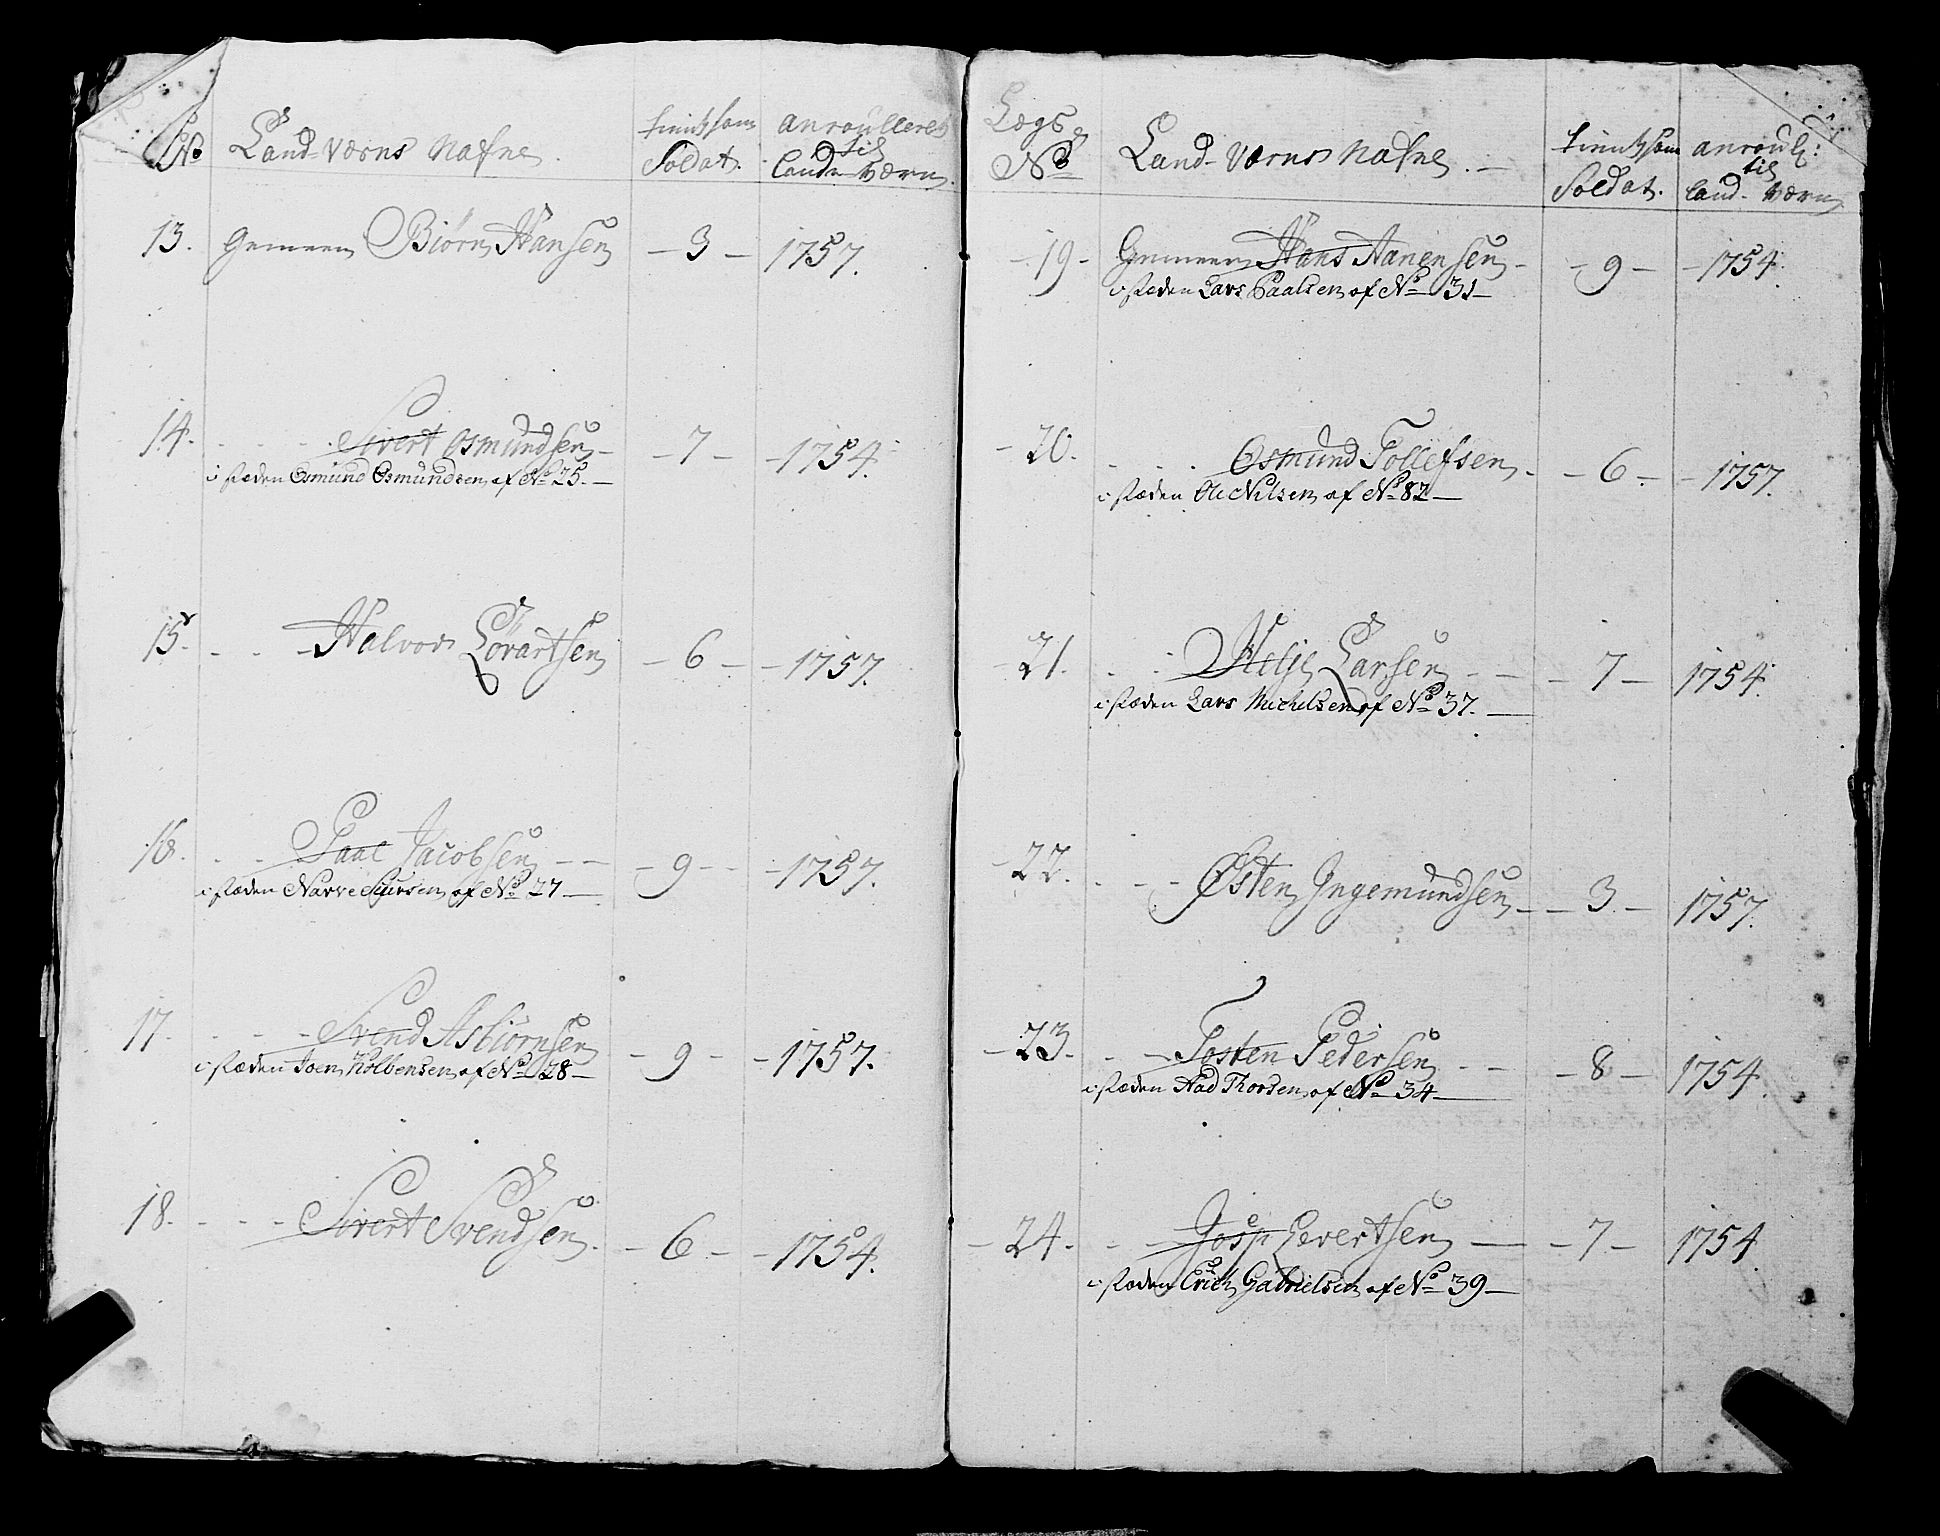 No Land-Værns Nafne. tient som Soldat. anroulleret til Land-Værn.
13. Gemeen Biørn Hansen - 3 - 1757.
14. - - - Sivert Osmundsen - - 7 - - 1754.
i stæden Osmund Osmundsen af No 25. -
15. - - - Halvor Lovartsen - 6 - - 1757.
16. - - Paal Jacobsen - - - 9 - - 1757.
i stæden Narve Siursen af No 27 -
17. - - - Svend Asbiørnsen - 9 - - 1757.
i stæden Joen Kolbensen af No 28 -
18. - - - Sivert Svendsen. - 6 - - 1754.
Lægs No Land-Værns Nafne. - tient som Soldat. anroull: til Land-Værn
- 19 - Gemeen Hans Aanensen - - 9 - - 1754.
i stæden Lars Paalsen af No 31 -
- 20. - - - Osmund Tollefsen - - 6 - - 1757.
i stæden Ole Nilsen af No 82 -
- 21. - - Helje Larsen - - - 7 - 1754.
i stæden Lars Michelsen af No 37. -
- 22. - - - Østen Ingemundsen - - 3 - 1757.
- 23. - - Tosten Pedersen - - - 8 - 1754.
i stæden Aad Thorsen af No 34 -
- 24. - - Josep Levertsen - - 7 - 1754
i stæden Erich Gabrielsen af No 39 -